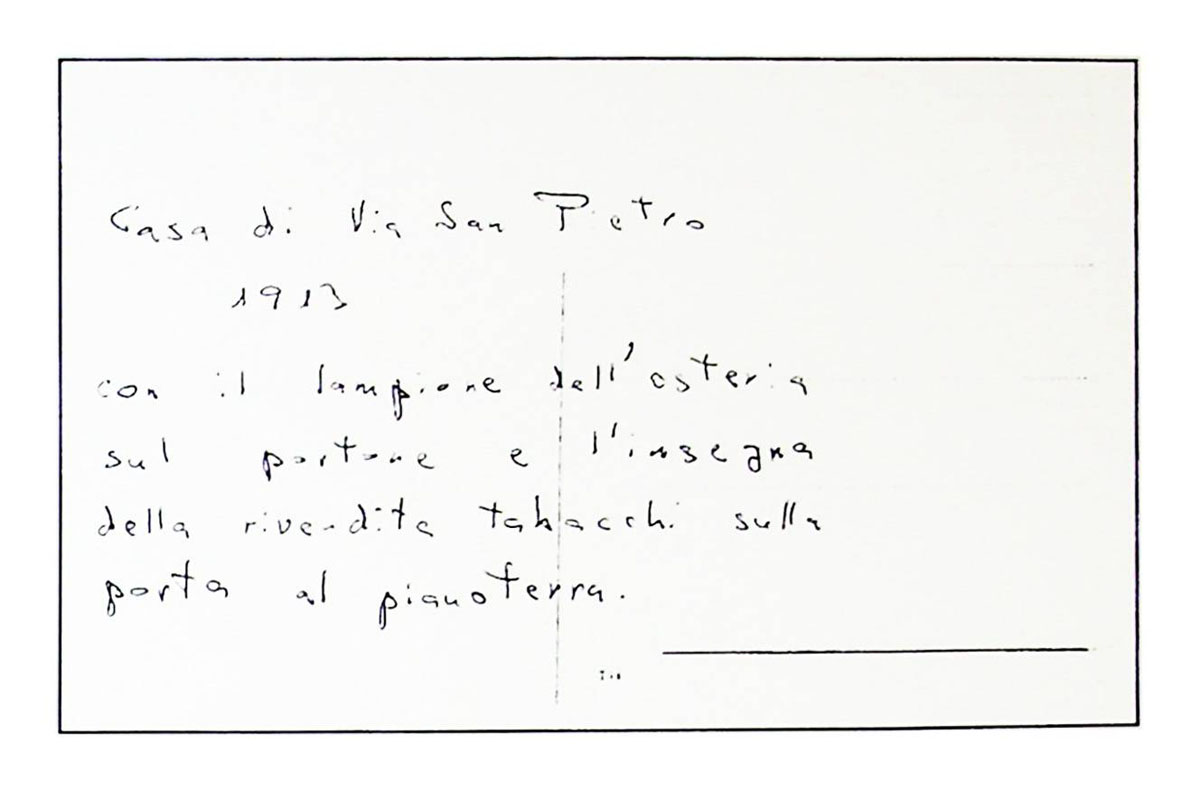 Casa di Via San Pietro
1913
con il lampione dell'osteria
sul portone e l'insegna
della rivendita tabacchi sulla
porta al pianoterra.